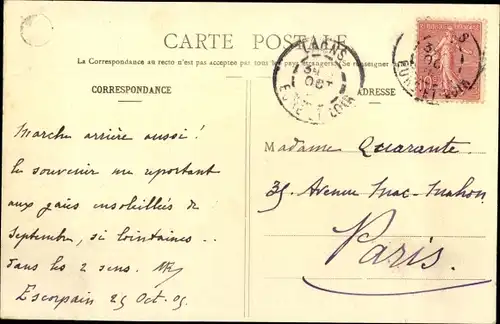 CARTE POSTALE
La Correspondance au recto n'est pas acceptée par tous les pays étrangers (Se renseigner
CORRESPONDANCE
ADRESSE
Marche arrière aussi!
le souvenir me reportant
aux gaies ensoleillées de
Septembre, si lointaines..
dans les 2 sens.
Escorpain 25 Oct. 05
Madame Quarante.
35, Avenue Mac-Mahon
Paris.